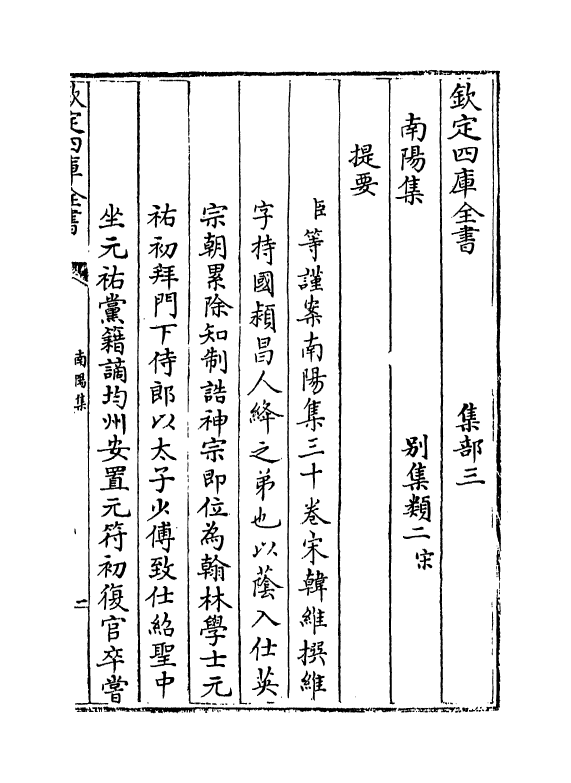 欽定四庫全書　集部三
南陽集　別集類二宋
提要
臣等謹案南陽集三十卷宋韓維撰維
字持國潁昌人絳之弟也以蔭入仕英
宗朝累除知制誥神宗即位為翰林學士元
祐初拜門下侍郎以太子少傅致仕紹聖中
坐元祐黨籍謫均州安置元符初復官卒嘗
欽定四庫全書　南陽集　二